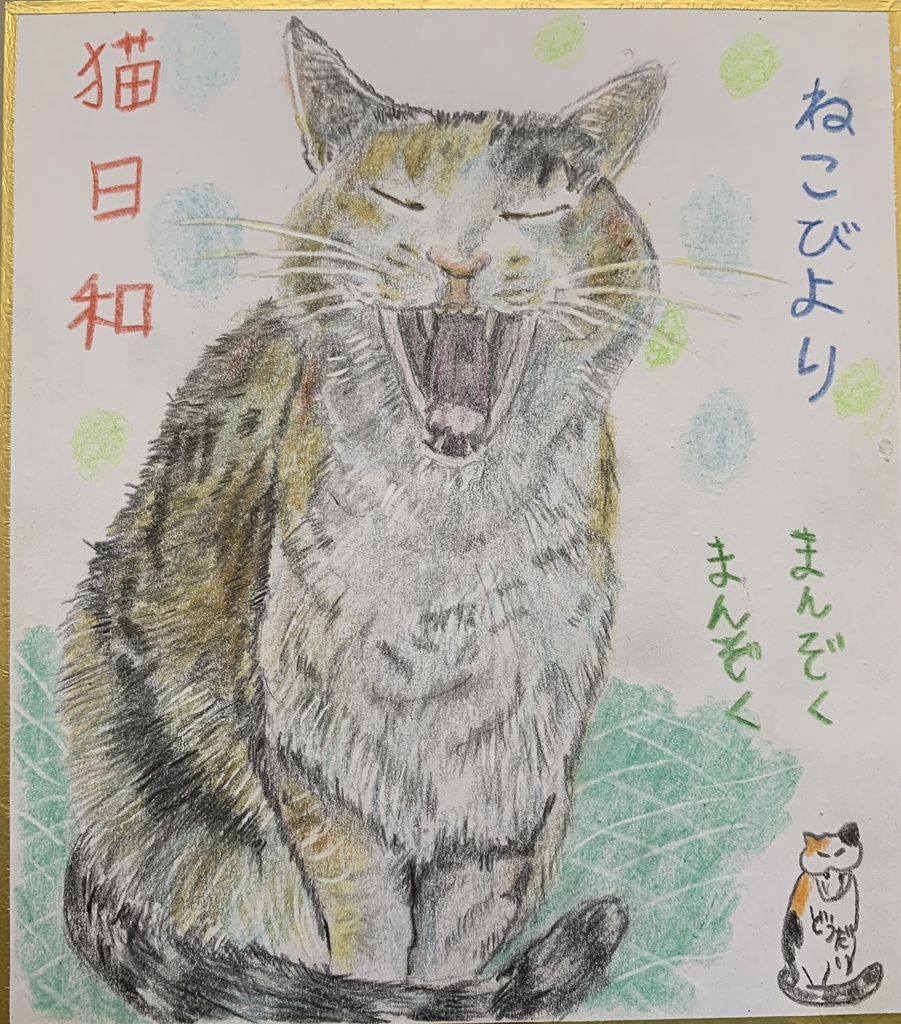 猫日和
ねこびより
まんぞく
まんぞく
どうだい